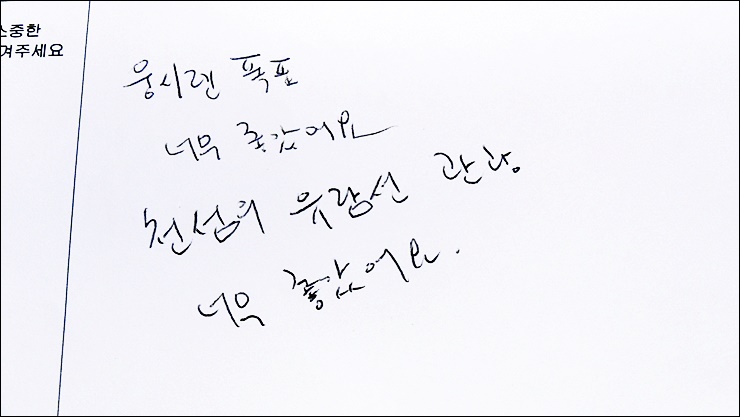 소중한
겨주세요
웅시렌 폭포
너무 좋았어요
천섬의 유람선 관광
너무 좋았어요.